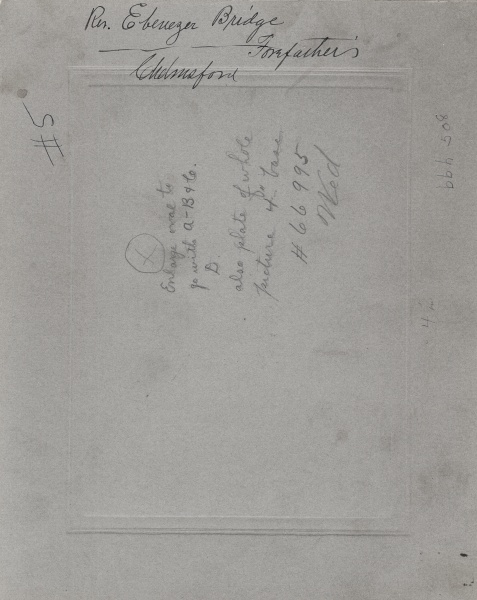 Rev. Ebenezer Bridge
Forefather's
Chelmsford
#5
X
Enlarge oval to
go with A-B & C.
D.
also plate of whole
picture
base
#66995